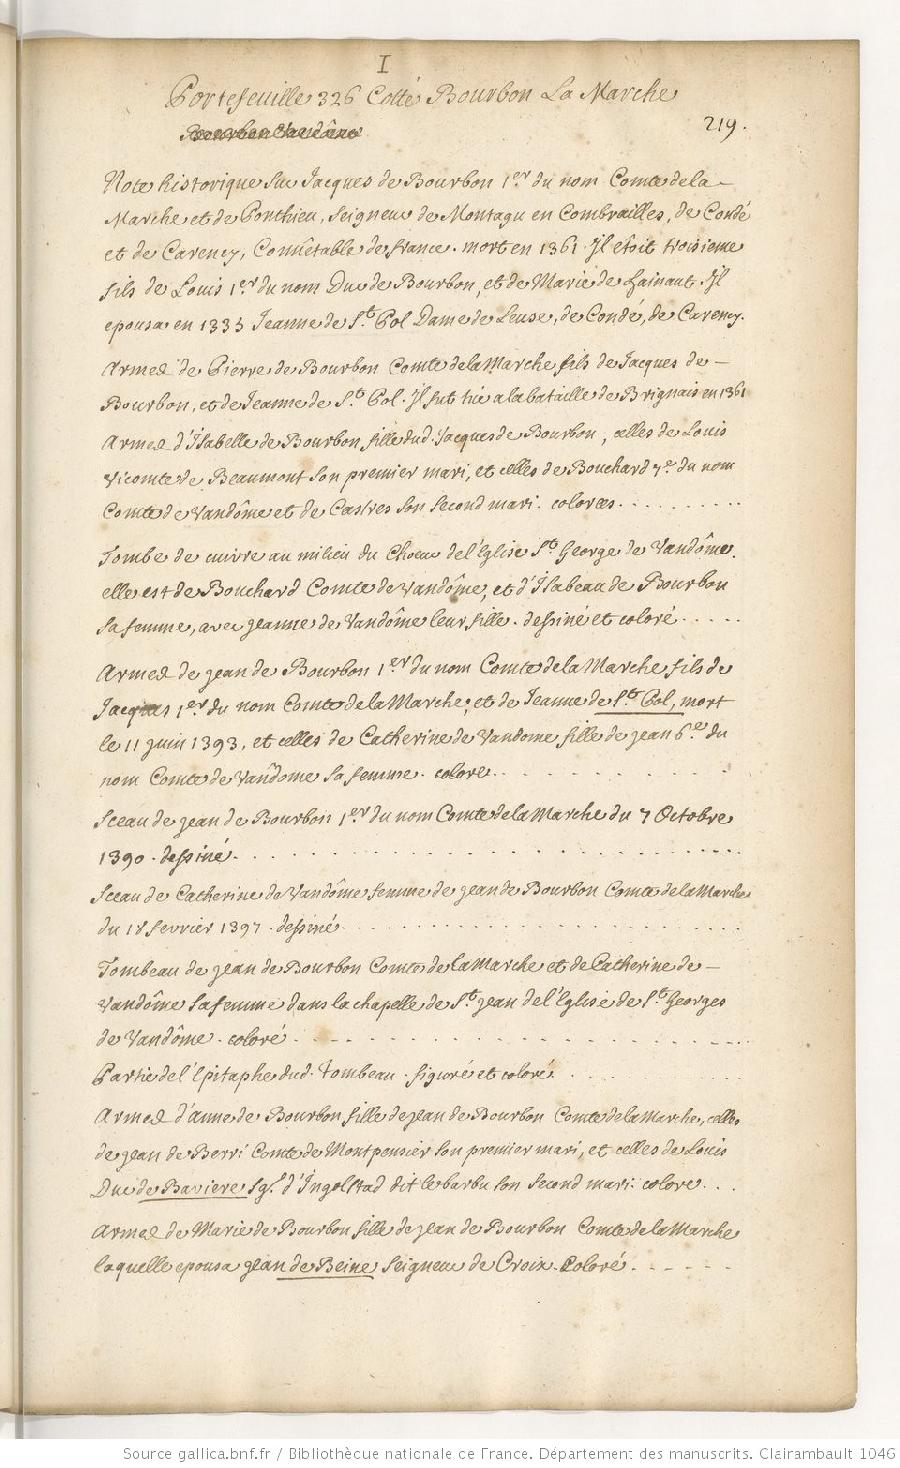 I
Portefeuille 326 Cotté Bourbon La Marche
Bourbon Vandôme
219.
Note historique sur Jacques de Bourbon 1.er du nom Comte de la –
Marche et de Ponthieu, Seigneur de Montagu en Combrailles, de Condé
et de Carency, Connétable de france. mort en 1361. Il etoit troisieme
fils de Louis 1.er du nom Duc de Bourbon, et de Marie de hainaut. Il
epousa en 1335 Jeanne de S.t Pol Dame de Leuse, de Condé, de Carency.
Armes de Pierre de Bourbon Comte de la Marche fils de Jacques de –
Bourbon, et de Jeanne de S.t Pol. Il fut tué a la bataille de Brignais en 1361
Armes d'Isabelle de Bourbon fille dud. Jacques de Bourbon, celles de Louis
Vicomte de Beaumont son premier mari, et celles de Bouchard 7.e du nom
Comte de Vandôme et de Castres son second mari. colorées. . . . . . . . . .
Tombe de cuivre au milieu du Choeur de l'Eglise S.t George de Vandôme.
elle est de Bouchard Comte de Vandôme, et d'Isabeau de Bourbon
sa femme, avec jeanne de Vandôme leur fille. dessiné et coloré. . . . .
Armes de jean de Bourbon 1.er du nom Comte de la Marche fils de
Jacques 1.er du nom Comte de la Marche, et de Jeanne de S.t Pol, mort
le 11 juin 1393, et celles de Catherine de Vandome fille de jean 6.e du
nom Comte de Vandome sa femme. colore. . . . . . . . . .
Sceau de jean de Bourbon 1.er du nom Comte de la Marche du 7 Octobre
1390. dessiné. . . . . . . . . . . . . . . . . . . .
Sceau de Catherine de Vandôme femme de jean de Bourbon Comte de la Marche
du 18 fevrier 1397. dessiné. . . . . . . . . . . . . . .
Tombeau de jean de Bourbon Comte de la Marche et de Catherine de –
Vandôme sa femme dans la chapelle de S.t jean de l'Eglise de S.t Georges
de Vandôme. coloré. . . . . . . . . . . . . . . . .
Partie de l'Epitaphe dud. Tombeau. figuré et coloré. . . . . .
Armes d'anne de Bourbon fille de jean de Bourbon Comte de la Marche, celles
de jean de Berri Comte de Montpensier son premier mari, et celles de Louis
Duc de Baviere Sg.r d'Ingolstad dit le barbu son second mari. colore. . .
Armes de Marie de Bourbon fille de jean de Bourbon Comte de la Marche
laquelle epousa jean de Beine Seigneur de Croix. Coloré. . . . . . .
Source gallica.bnf.fr / Bibliothèque nationale de France. Département des manuscrits. Clairambault 1046